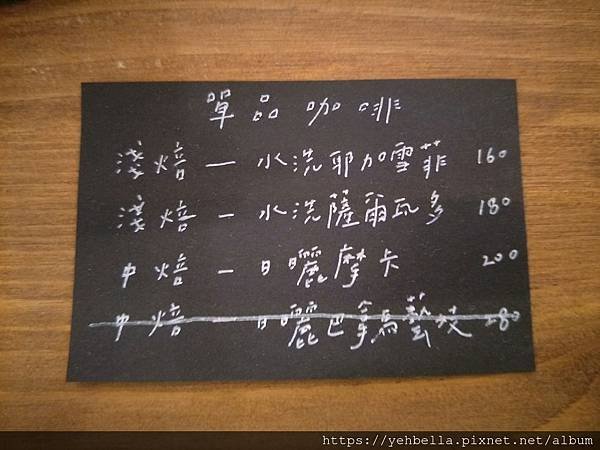 單品咖啡
淺焙 — 水洗耶加雪菲 160
淺焙 — 水洗薩爾瓦多 180
中焙 — 日曬摩卡 200
中焙 — 日曬巴拿馬藝妓 280
https://yehbella.pixnet.net/album